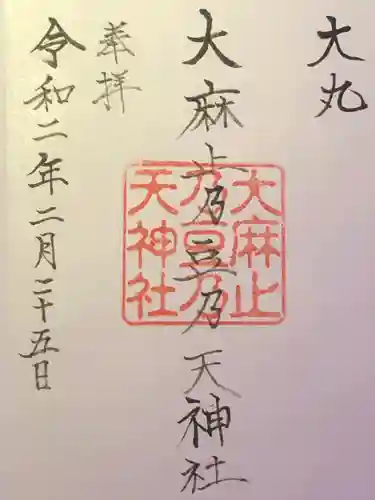 大丸
大麻止乃豆乃天神社
奉拝
令和二年二月二十五日
大麻止
乃豆乃
天神社